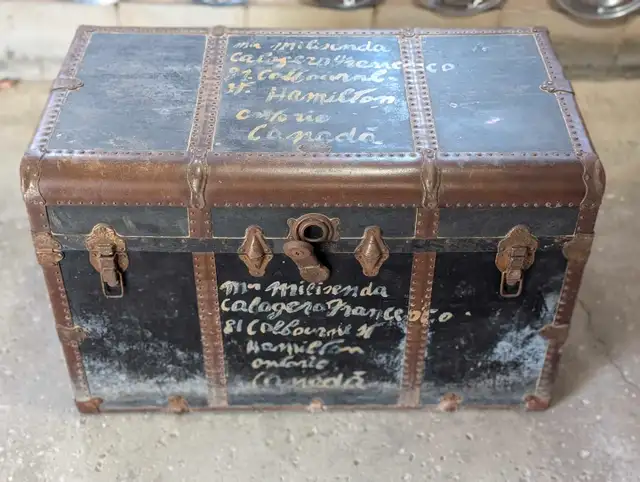 Mr Milisenda
Calogero Francesco
81 Colbourne
St. Hamilton
ontorio
Canada
Mr Milisenda
Calogero Francesco
81 Colbourne st
Hamilton
ontario
Canada